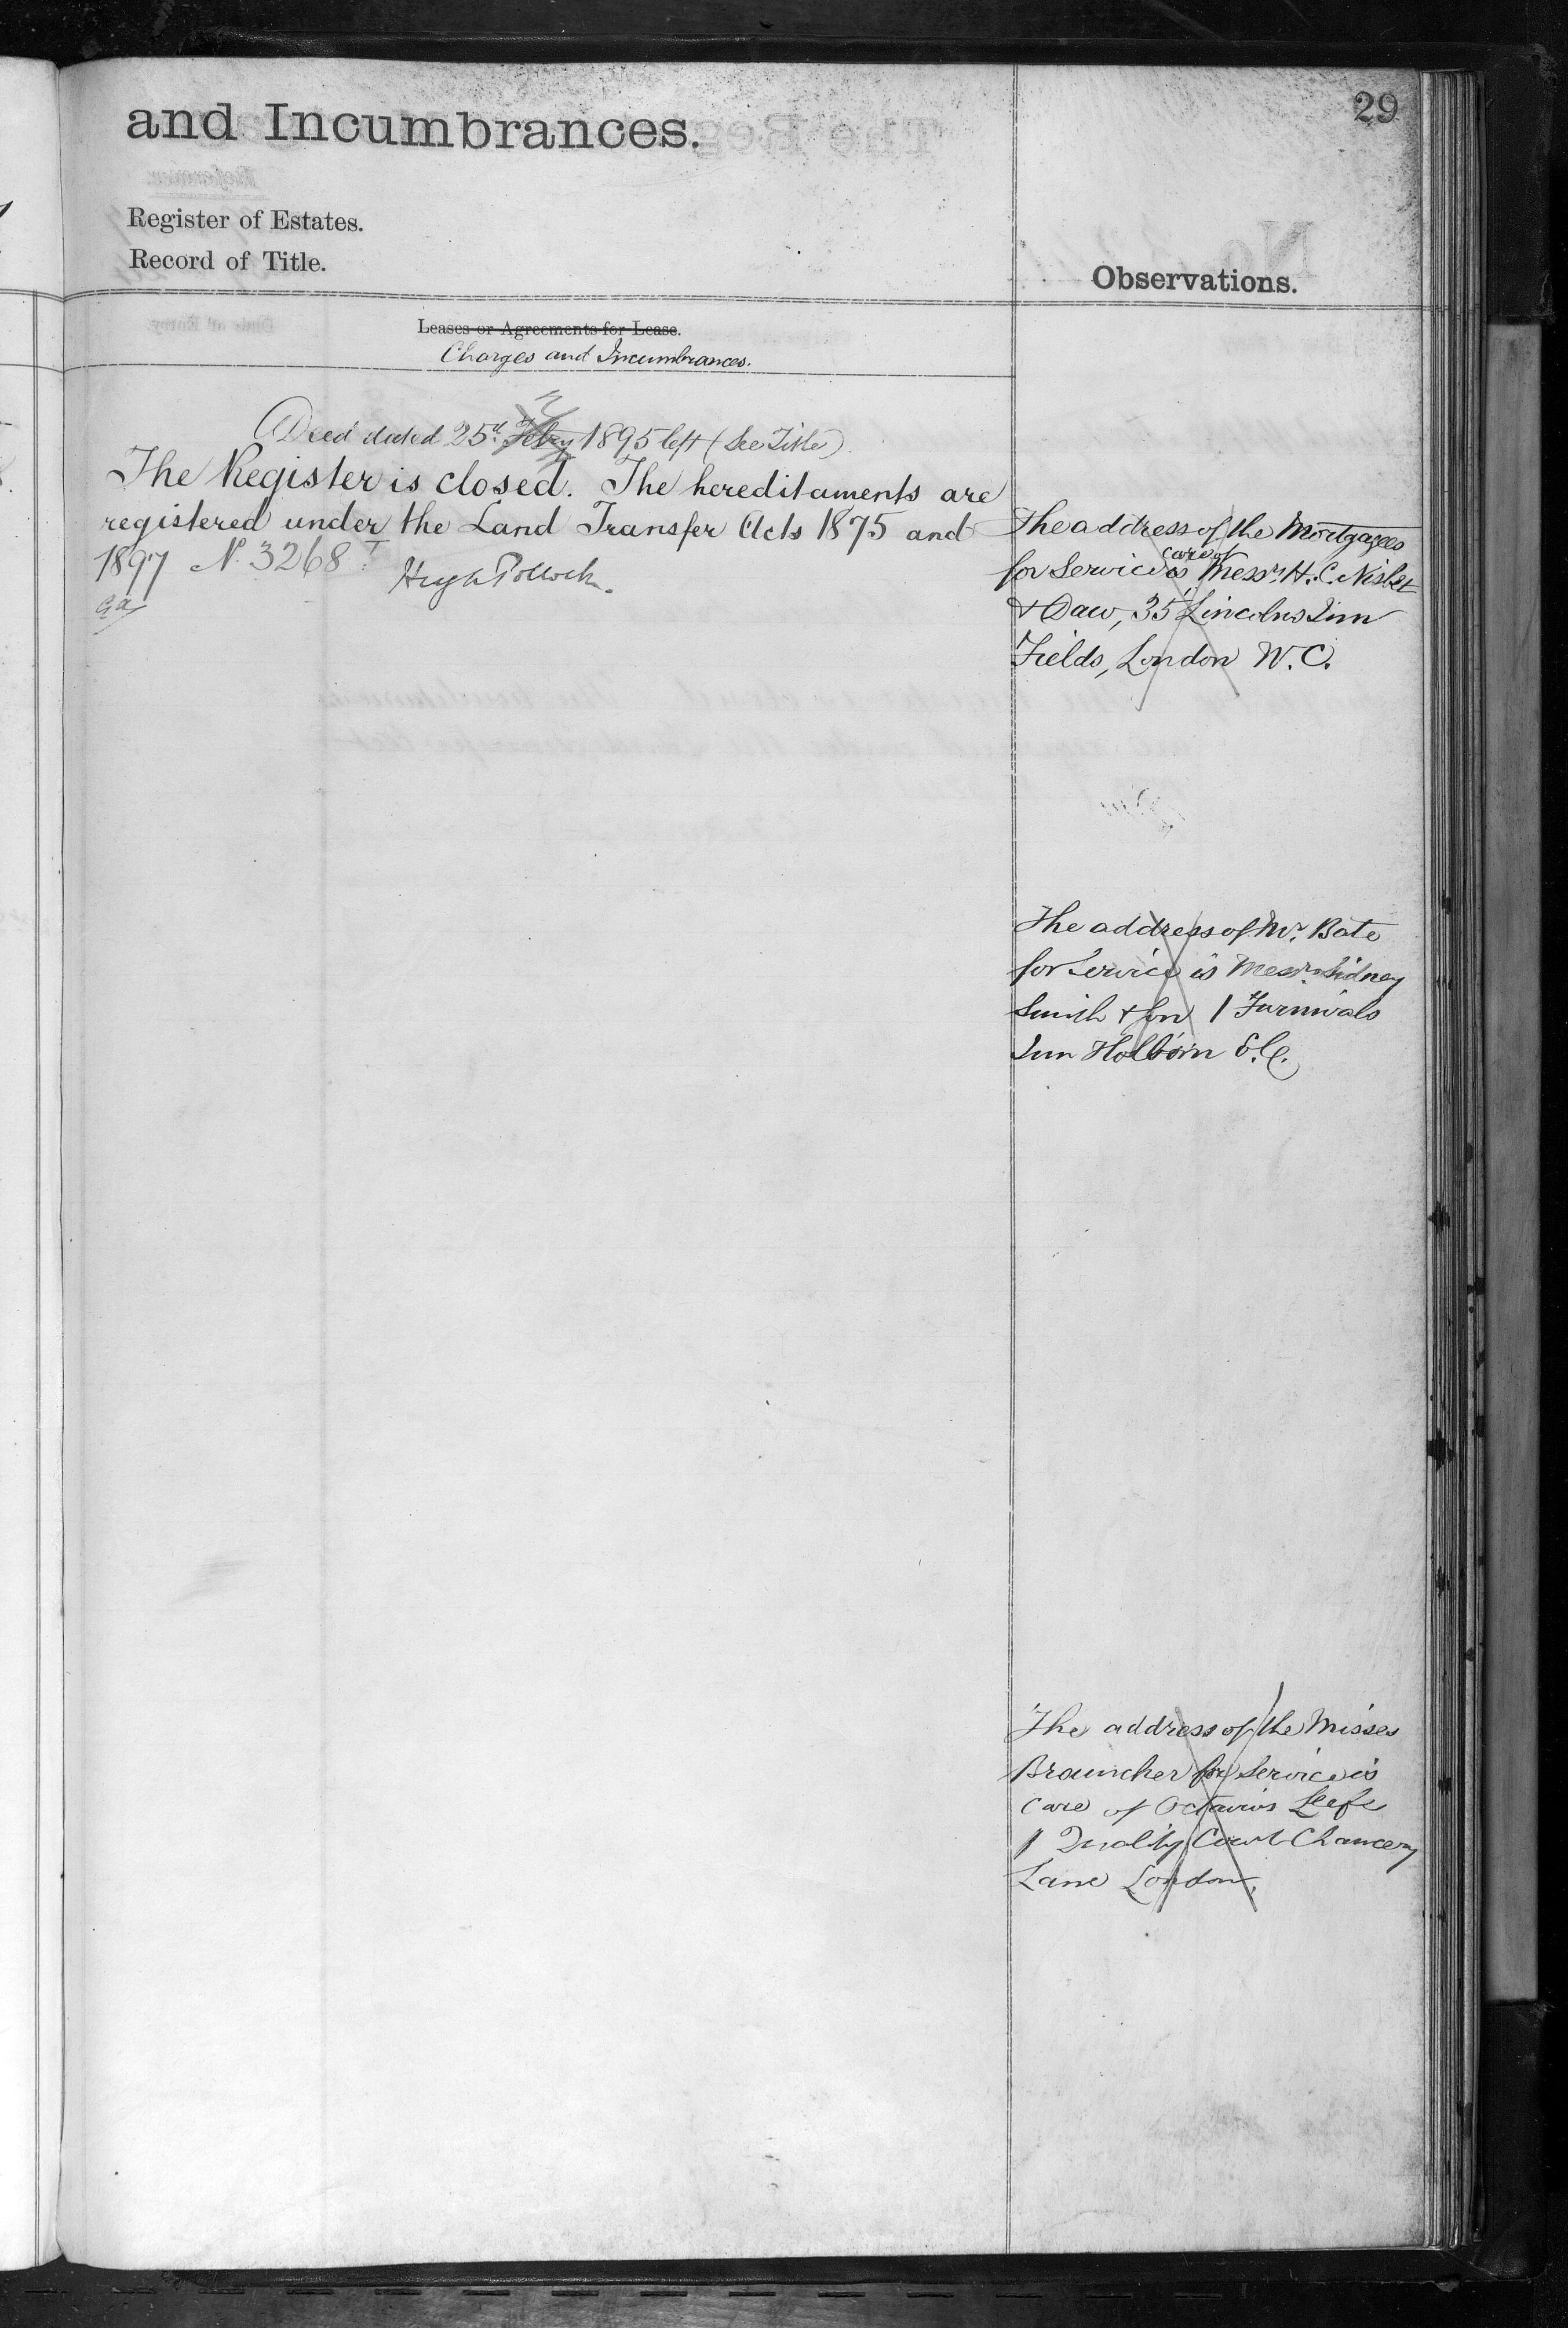 29
and Incumbrances.
Register of Estates.
Record of Title.
Observations.
Leases or Agreements for Lease.
Charges and Incumbrances.
Deed dated 25th Feby 1895 left (See Title)
The Register is closed. The hereditaments are
registered under the Land Transfer Acts 1875 and
1897 No. 3268
Hugh Pollock.
The address of the Mortgagees
care of
for Service is Messrs. H. C. Nisbet
& Daw, 35 Lincolns Inn
Fields, London W.C.
The address of Mr. Bate
for Service is Messrs. Sidney
Smith & Son 1 Furnivals
Inn Holborn E.C.
The address of the Misses
Brauncker for Service is
care of Octavius Leefe
1 Quality Court Chancery
Lane London.